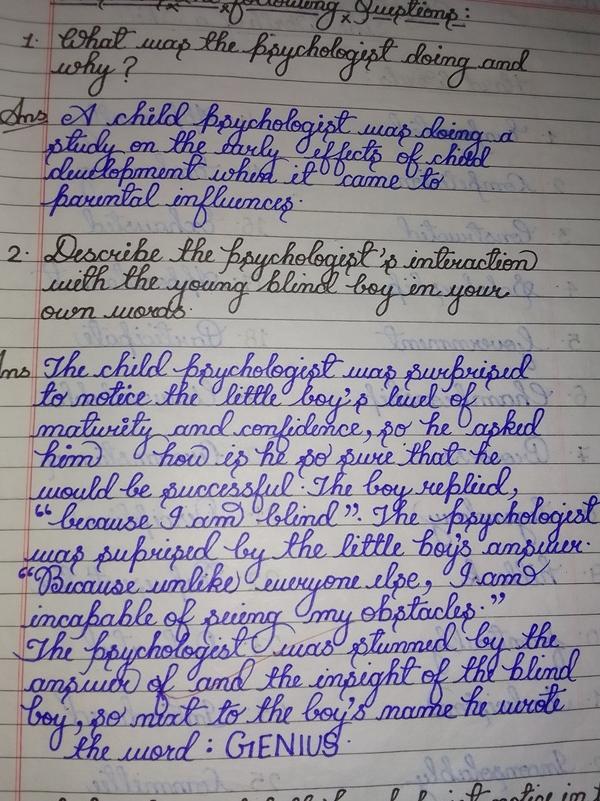 following Questions:
1. What was the psychologist doing and
why?
Ans A child psychologist was doing a
study on the early effects of child
development when it came to
parental influences.
2. Describe the psychologist's interaction
with the young blind boy in your
own words.
Ans The child psychologist was surprised
to notice the little boy's level of
maturity and confidence, so he asked
him how is he so sure that he
would be successful. The boy replied,
"because I am blind". The psychologist
was suprised by the little boy's answer.
"Because unlike everyone else, I am
incapable of seeing my obstacles."
The psychologist was stunned by the
answer of and the insight of the blind
boy, so next to the boy's name he wrote
the word: GENIUS.